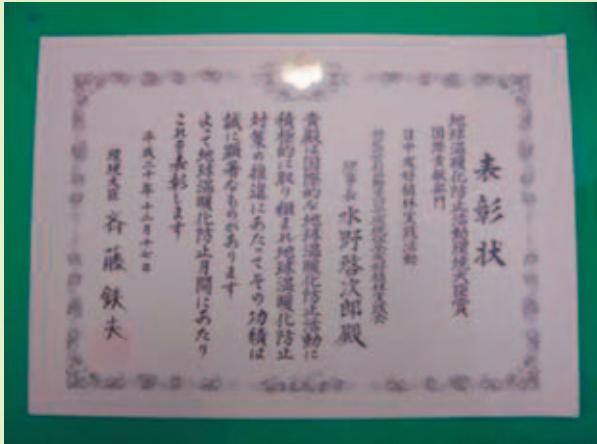 表彰状
地球温暖化防止活動環境大臣賞
国際貢献部門
日中友好植林実践活動
理事長 水野啓次郎殿
貴殿は国際的な地球温暖化防止活動に
積極的に取り組まれ地球温暖化防止
対策の推進にあたってその功績は
誠に顕著なものがあります
よって地球温暖化防止月間にあたり
これを表彰します
平成二十年十二月十七日
環境大臣 斉藤鉄夫